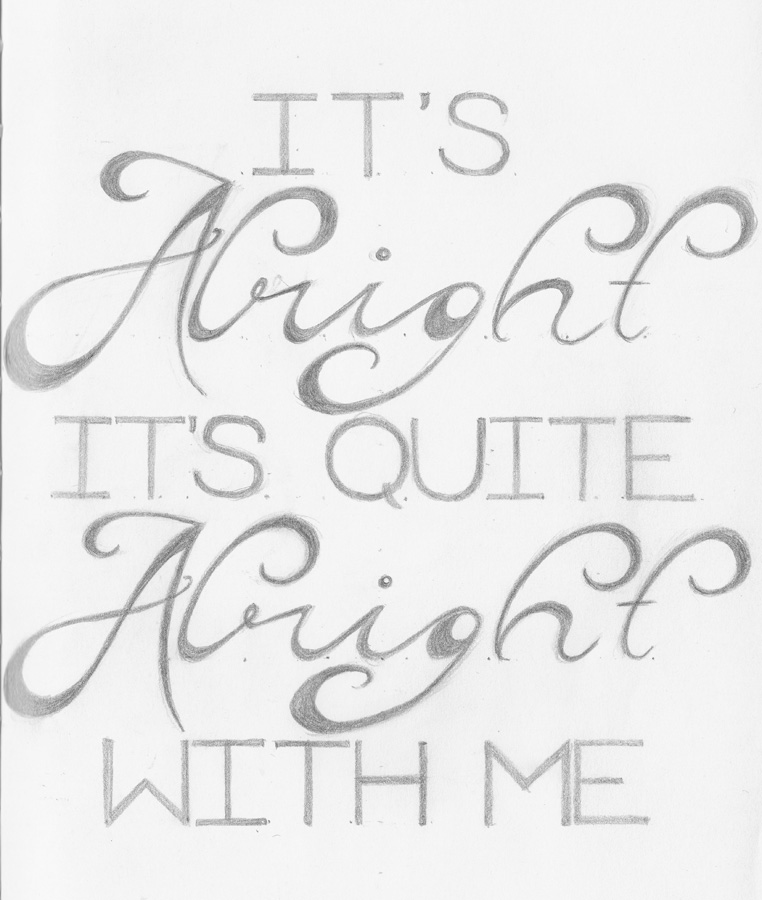 IT'S
Alright
IT'S QUITE
Alright
WITH ME